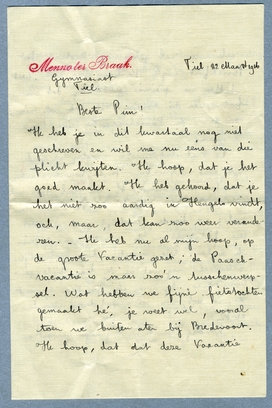 Menno ter Braak.
Gymnasiast
Tiel.
Tiel. 22 Maart 1916
Beste Pim!
Ik heb je in dit kwartaal nog niet
geschreven en wil me nu eens van die
plicht kwijten. Ik hoop, dat je het
goed maakt. Ik heb gehoord, dat je
het niet zoo aardig in Hengelo vindt,
och, maar, dat kan zoo weer verande-
ren. – Ik heb nu al mijn hoop, op
de groote Vacantie gezet; de Paasch-
vacantie is maar zoo'n tusschenver-
sel. Wat hebben we fijne fietstochten
gemaakt hè, je weet wel, vooral
toen we buiten aten bij Bredevoort.
Ik hoop, dat dat deze Vacantie